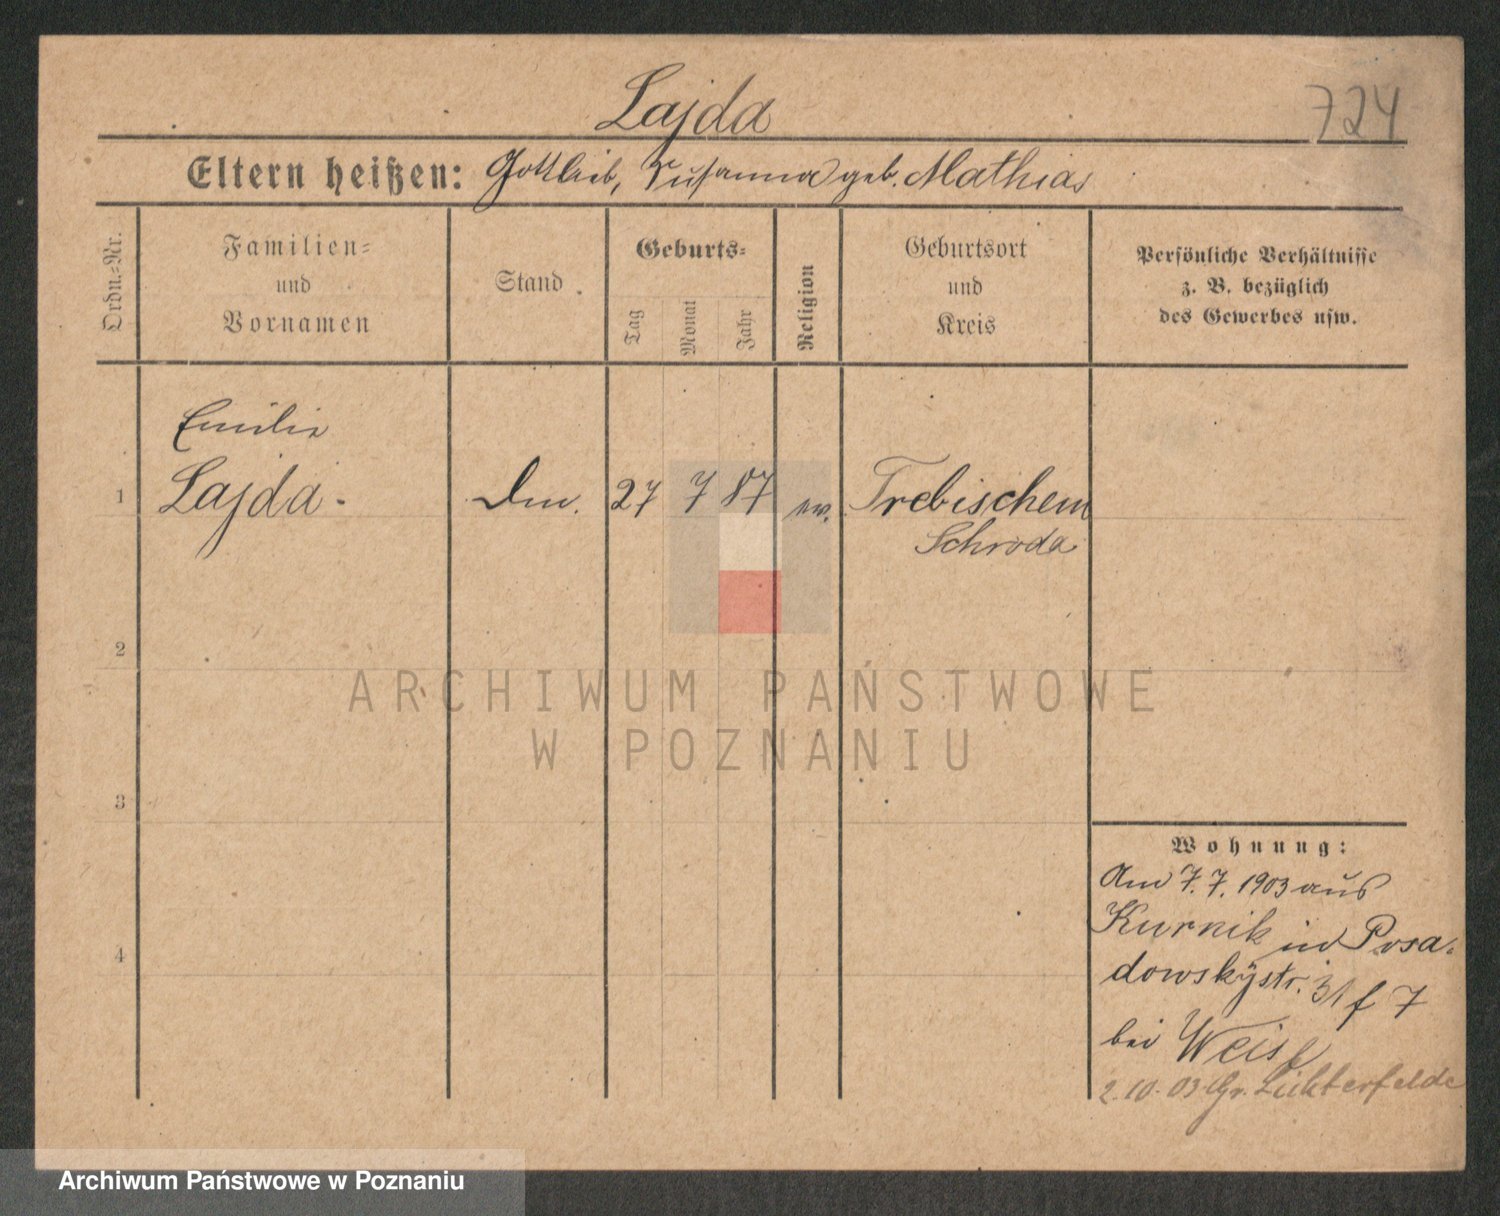 Lajda
724
Eltern heißen: Gottlieb, Susanna geb. Mathias
Ordn.=Nr.
Familien=
und
Vornamen
Stand
Geburts=
Tag
Monat
Jahr
Religion
Geburtsort
und
Kreis
Persönliche Verhältnisse
z. B. bezüglich
des Gewerbes usw.
Emilie
1 Lajda. Dm. 27 7 87 ev. Trebischem
Schroda
2
3
4
Wohnung:
Am 7.7.1903 aus
Kurnik in Posa-
dowskÿstr. 31 f 7
bei Weiß
2.10.03 Gr. Lichterfelde
ARCHIWUM PAŃSTWOWE
W POZNANIU
Archiwum Państwowe w Poznaniu